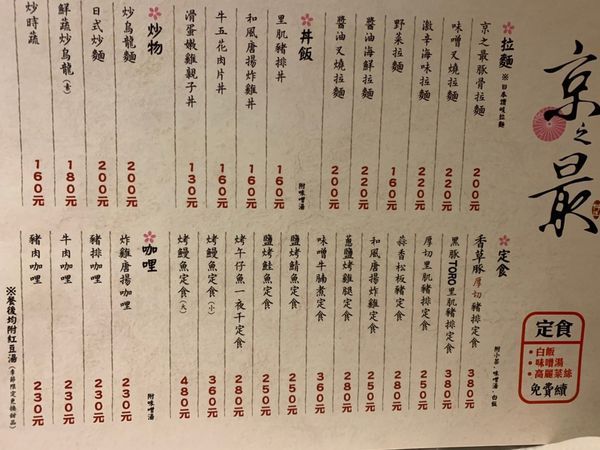 京之最
拉麵 ※日本讚岐拉麵
京之最豚骨拉麵 200元
味噌叉燒拉麵 220元
激辛海味拉麵 220元
野菜拉麵 160元
醬油海鮮拉麵 220元
醬油叉燒拉麵 200元
丼飯 附味噌湯
里肌豬排丼 160元
和風唐揚炸雞丼 160元
牛五花肉片丼 160元
滑蛋嫩雞親子丼 130元
炒物
炒烏龍麵 200元
日式炒麵 200元
鮮蔬炒烏龍(素) 180元
炒時蔬 160元
定食 附小菜、味噌湯、白飯
香草豚厚切豬排定食 380元
黑豚TORO里肌豬排定食 380元
厚切里肌豬排定食 250元
蒜香松板豬定食 280元
和風唐揚炸雞定食 250元
蔥鹽烤雞腿定食 280元
味噌牛腩煮定食 360元
鹽烤鯖魚定食 250元
鹽烤鮭魚定食 250元
烤午仔魚一夜干定食 280元
烤鰻魚定食(小) 360元
烤鰻魚定食(大) 480元
咖哩 附味噌湯
炸雞唐揚咖哩 230元
豬排咖哩 230元
牛肉咖哩 230元
豬肉咖哩 230元
※餐後均附紅豆湯(季節限定更換甜品)
定食
•白飯
•味噌湯
•高麗菜絲
免費續